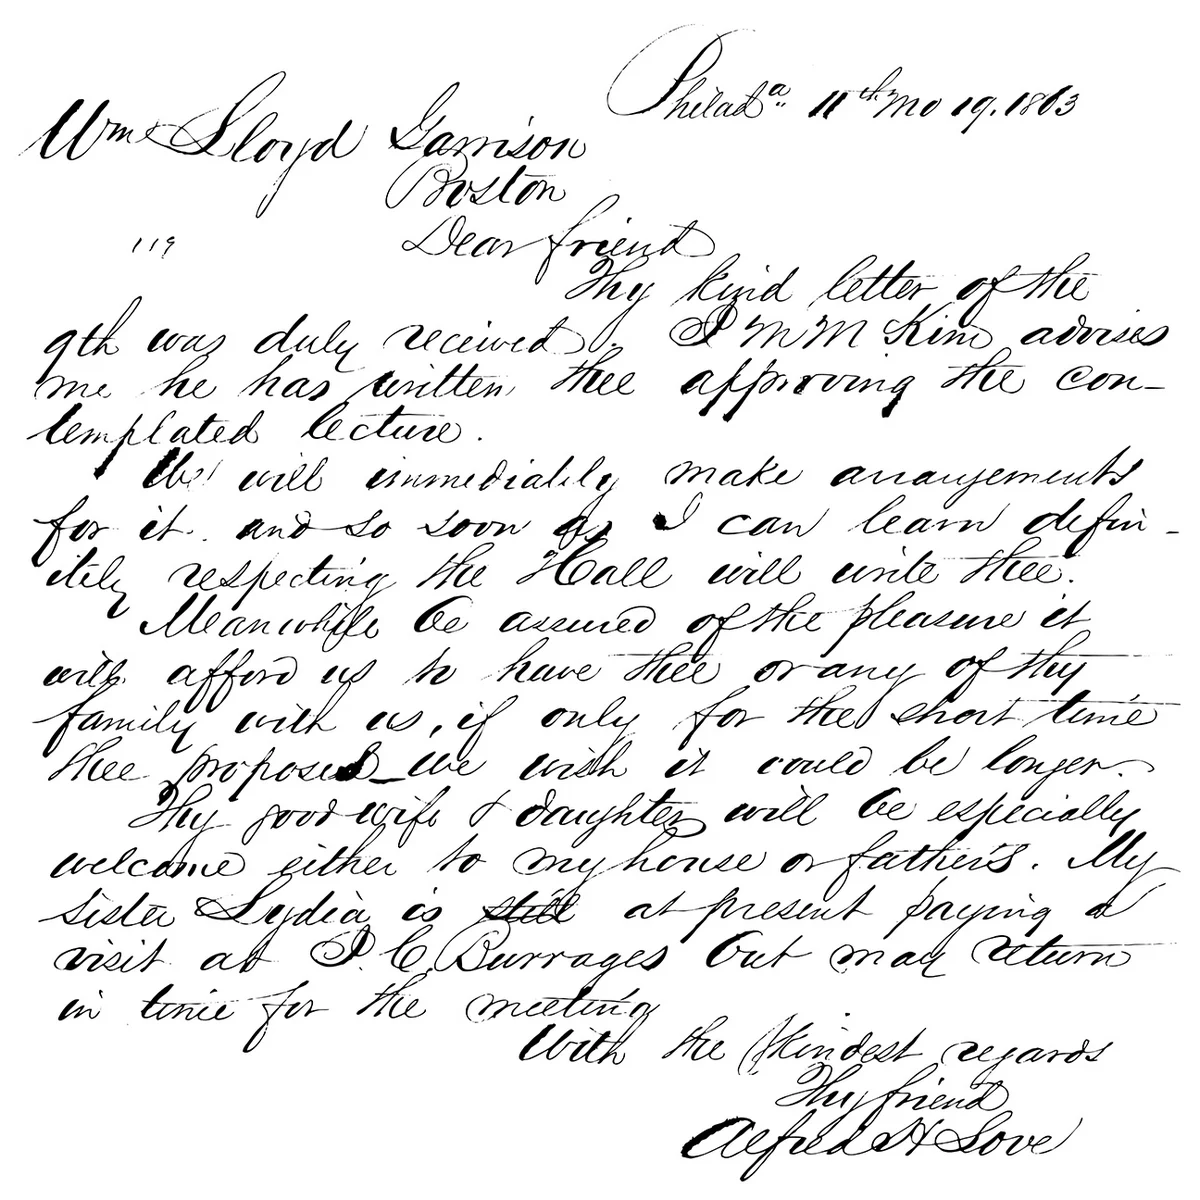 Philada 11th Mo 19. 1863
Wm Lloyd Garrison
Boston
119 Dear friend
Thy kind letter of the
9th was duly received. J M McKim advises
me he has written thee approving the con-
templated lecture.
We will immediately make arrangements
for it. and so soon as I can learn defin-
itely respecting the Hall will write thee.
Meanwhile be assured of the pleasure it
will afford us to have thee or any of thy
family with us, if only for the short time
thee proposed_we wish it could be longer.
Thy good wife & daughter will be especially
welcome either to my house or father's. My
sister Lydia is still at present paying a
visit at J. C. Burrages but may return
in time for the meeting
With the kindest regards
Thy friend
Alfred H Love